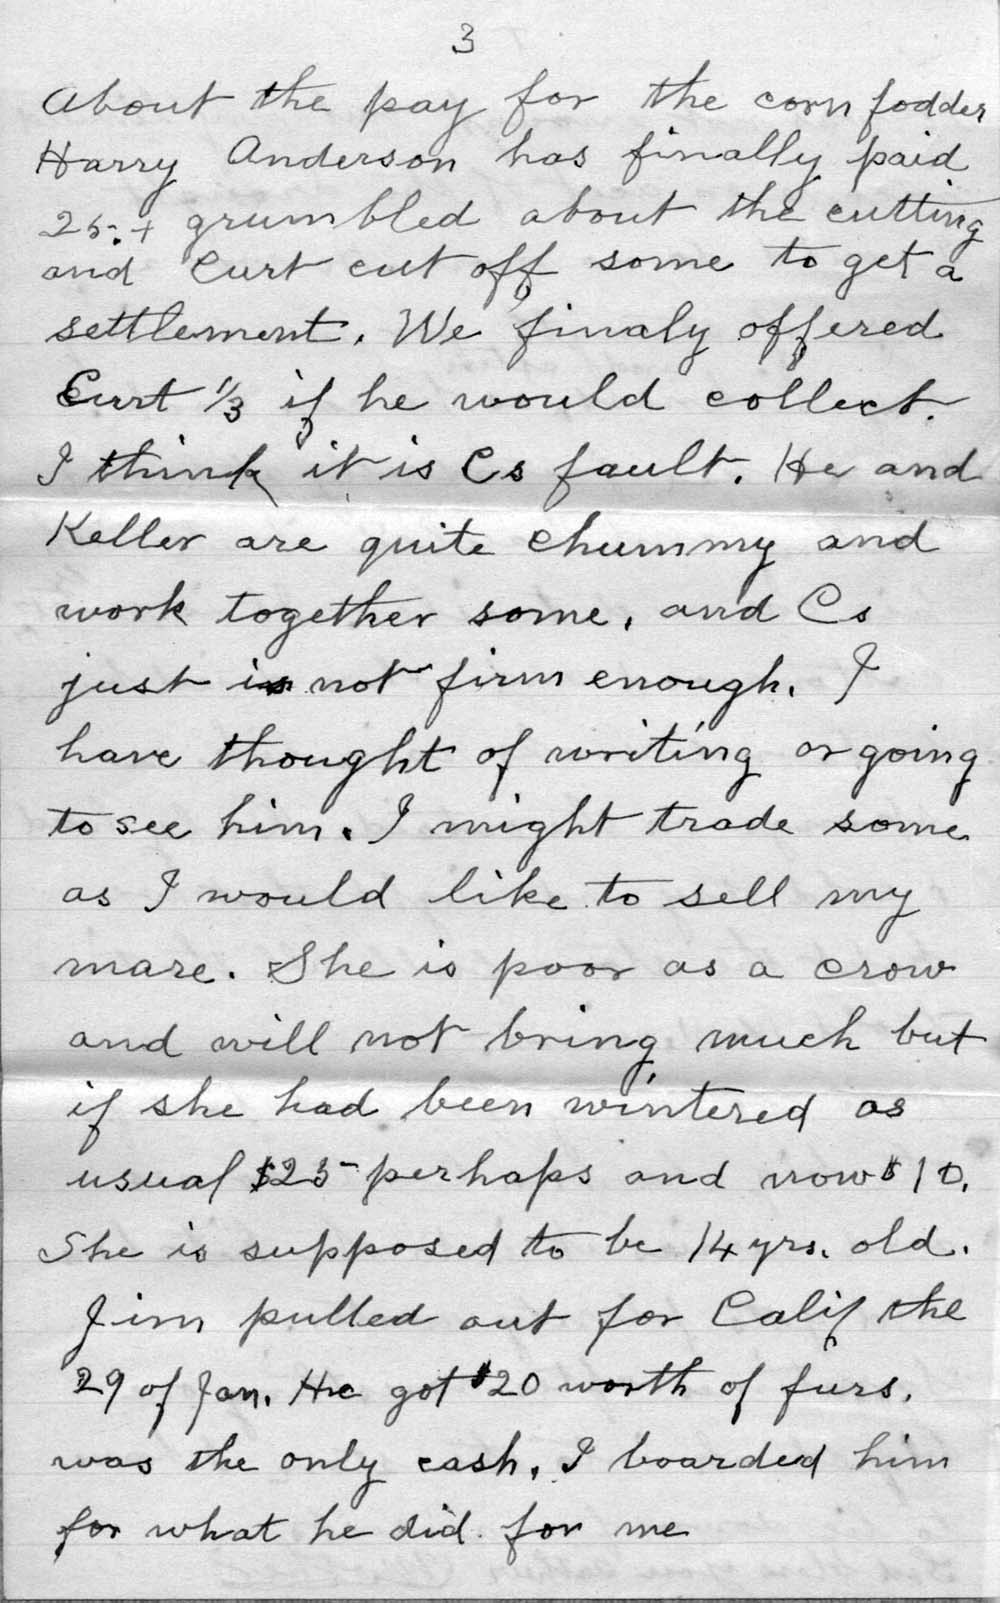 3
About the pay for the corn fodder
Harry Anderson has finally paid
25.+ grumbled about the cutting
and Curt cut off some to get a
settlement. We finaly offered
Curt 1/3 if he would collect.
I think it is Cs fault. He and
Keller are quite chummy and
work together some, and Cs
just is not firm enough. I
have thought of writing or going
to see him. I might trade some
as I would like to sell my
mare. She is poor as a crow
and will not bring much but
if she had been wintered as
usual $25 perhaps and now $10.
She is supposed to be 14 yrs. old.
Jim pulled out for Calif the
29 of Jan. He got $20 worth of furs.
was the only cash. I boarded him
for what he did for me